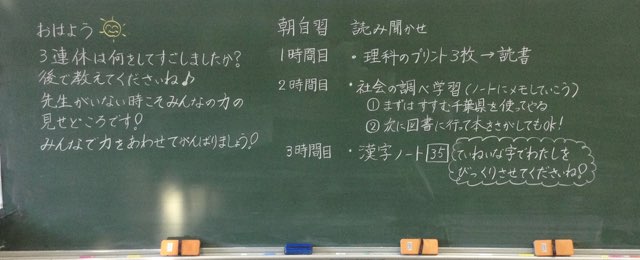 おはよう
3連休は何をしてすごしましたか？
後で教えてくださいね♪
先生がいない時こそみんなの力の
見せどころです！
みんなで力をあわせてがんばりましょう！
朝自習 読み聞かせ
1時間目 ・理科のプリント3枚→読書
2時間目 ・社会の調べ学習(ノートにメモしていこう)
① まずはすすむ千葉県を使ってやる
② 次に図書に行って本をさがしてもOK!
3時間目 ・漢字ノート 35
ていねいな字でわたしを
びっくりさせてくださいね？